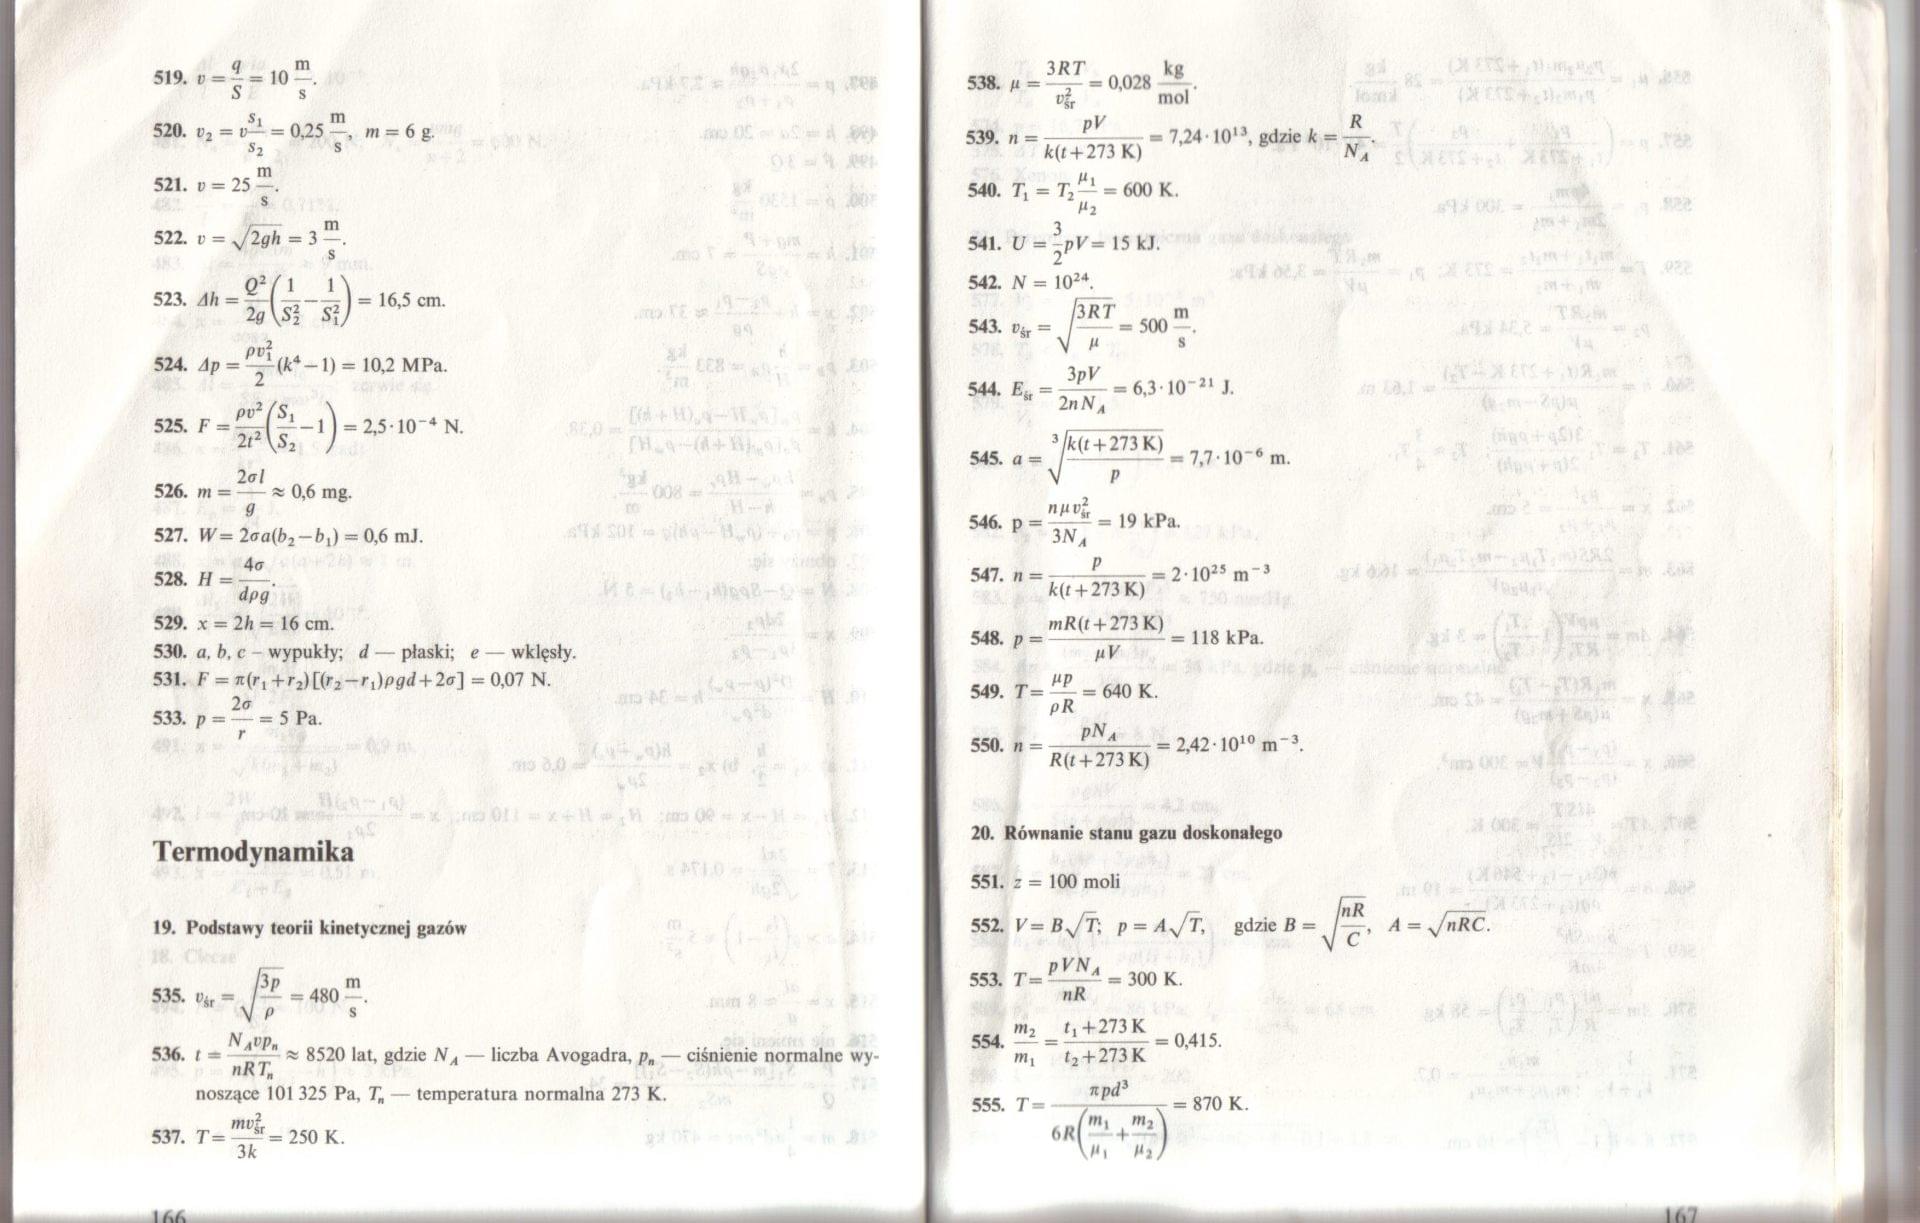 519. v = q/S = 10 m/s.
520. v₂ = v s₁/s₂ = 0,25 m/s, m = 6 g.
521. v = 25 m/s.
522. v = √(2gh) = 3 m/s.
523. Δh = Q²/2g (1/S₂² − 1/S₁²) = 16,5 cm.
524. Δp = ρv₁²/2 (k⁴ − 1) = 10,2 MPa.
525. F = ρv²/2t² (S₁/S₂ − 1) = 2,5·10⁻⁴ N.
526. m = 2σl/g ≈ 0,6 mg.
527. W = 2σa(b₂ − b₁) = 0,6 mJ.
528. H = 4σ/dρg.
529. x = 2h = 16 cm.
530. a, b, c – wypukły; d — płaski; e — wklęsły.
531. F = π(r₁ + r₂)[(r₂ − r₁)ρgd + 2σ] = 0,07 N.
533. p = 2σ/r = 5 Pa.
Termodynamika
19. Podstawy teorii kinetycznej gazów
535. v_śr = √(3p/ρ) = 480 m/s.
536. t = N_A v p_n/nRT_n ≈ 8520 lat, gdzie N_A — liczba Avogadra, p_n — ciśnienie normalne wy-
noszące 101 325 Pa, T_n — temperatura normalna 273 K.
537. T = mv²_śr/3k = 250 K.
166
538. μ = 3RT/v²_śr = 0,028 kg/mol.
539. n = pV/k(t + 273 K) = 7,24·10¹³, gdzie k = R/N_A.
540. T₁ = T₂ μ₁/μ₂ = 600 K.
541. U = 3/2 pV = 15 kJ.
542. N = 10²⁴.
543. v_śr = √(3RT/μ) = 500 m/s.
544. E_śr = 3pV/2nN_A = 6,3·10⁻²¹ J.
545. a = ³√(k(t + 273 K)/p) = 7,7·10⁻⁶ m.
546. p = nμv²_śr/3N_A = 19 kPa.
547. n = p/k(t + 273 K) = 2·10²⁵ m⁻³
548. p = mR(t + 273 K)/μV = 118 kPa.
549. T = μp/ρR = 640 K.
550. n = pN_A/R(t + 273 K) = 2,42·10¹⁰ m⁻³.
20. Równanie stanu gazu doskonałego
551. z = 100 moli
552. V = B√T; p = A√T, gdzie B = √(nR/C), A = √(nRC).
553. T = pVN_A/nR = 300 K.
554. m₂/m₁ = t₁ + 273 K/t₂ + 273 K = 0,415.
555. T = πpd³/6R(m₁/μ₁ + m₂/μ₂) = 870 K.
167